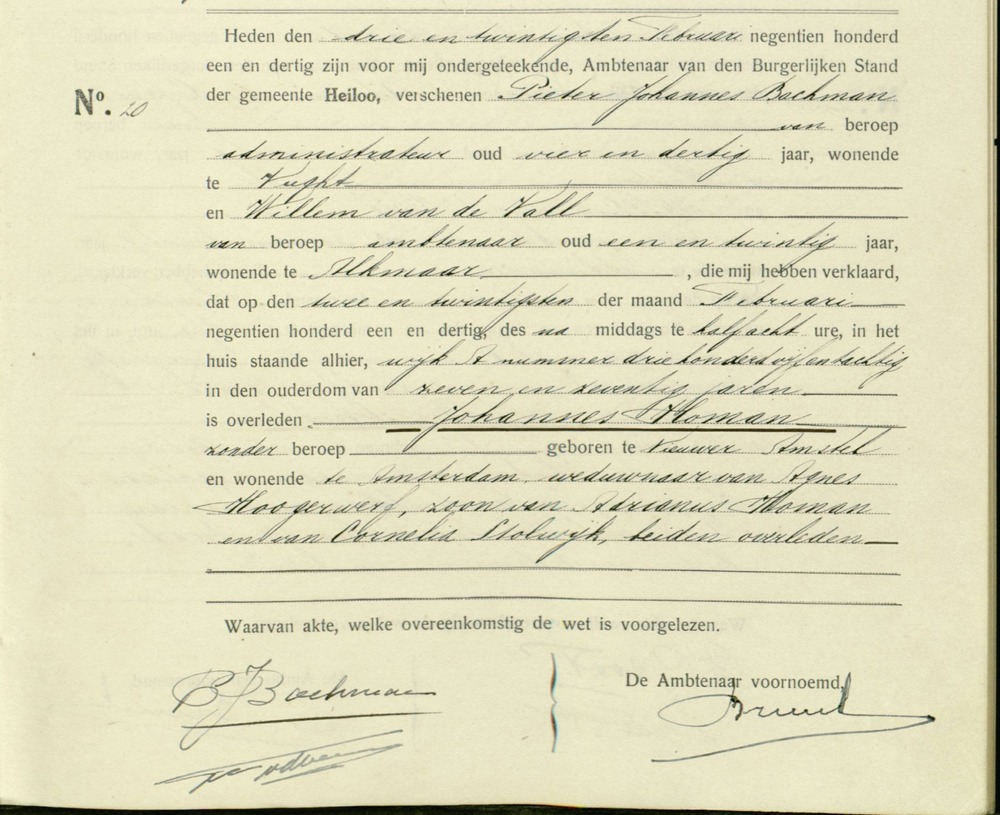 Heden den drie en twintigsten Februari negentien honderd
een en dertig zijn voor mij ondergeteekende, Ambtenaar van den Burgerlijken Stand
No. 20 der gemeente Heiloo, verschenen Pieter Johannes Bachman
van beroep
administrateur oud vier en dertig jaar, wonende
te Vught
en Willem van de Vall
van beroep ambtenaar oud een en twintig jaar,
wonende te Alkmaar, die mij hebben verklaard,
dat op den twee en twintigsten der maand Februari
negentien honderd een en dertig, des na middags te half acht ure, in het
huis staande alhier, wijk A nummer drie honderd vijf en tachtig
in den ouderdom van zeven en zeventig jaren
is overleden Johannes Homan
zonder beroep geboren te Nieuwer Amstel
en wonende te Amsterdam, weduwnaar van Agnes
Hoogerwerf, zoon van Adrianus Homan
en van Cornelia Stolwijk, beiden overleden
Waarvan akte, welke overeenkomstig de wet is voorgelezen.
De Ambtenaar voornoemd,
P J Bachman